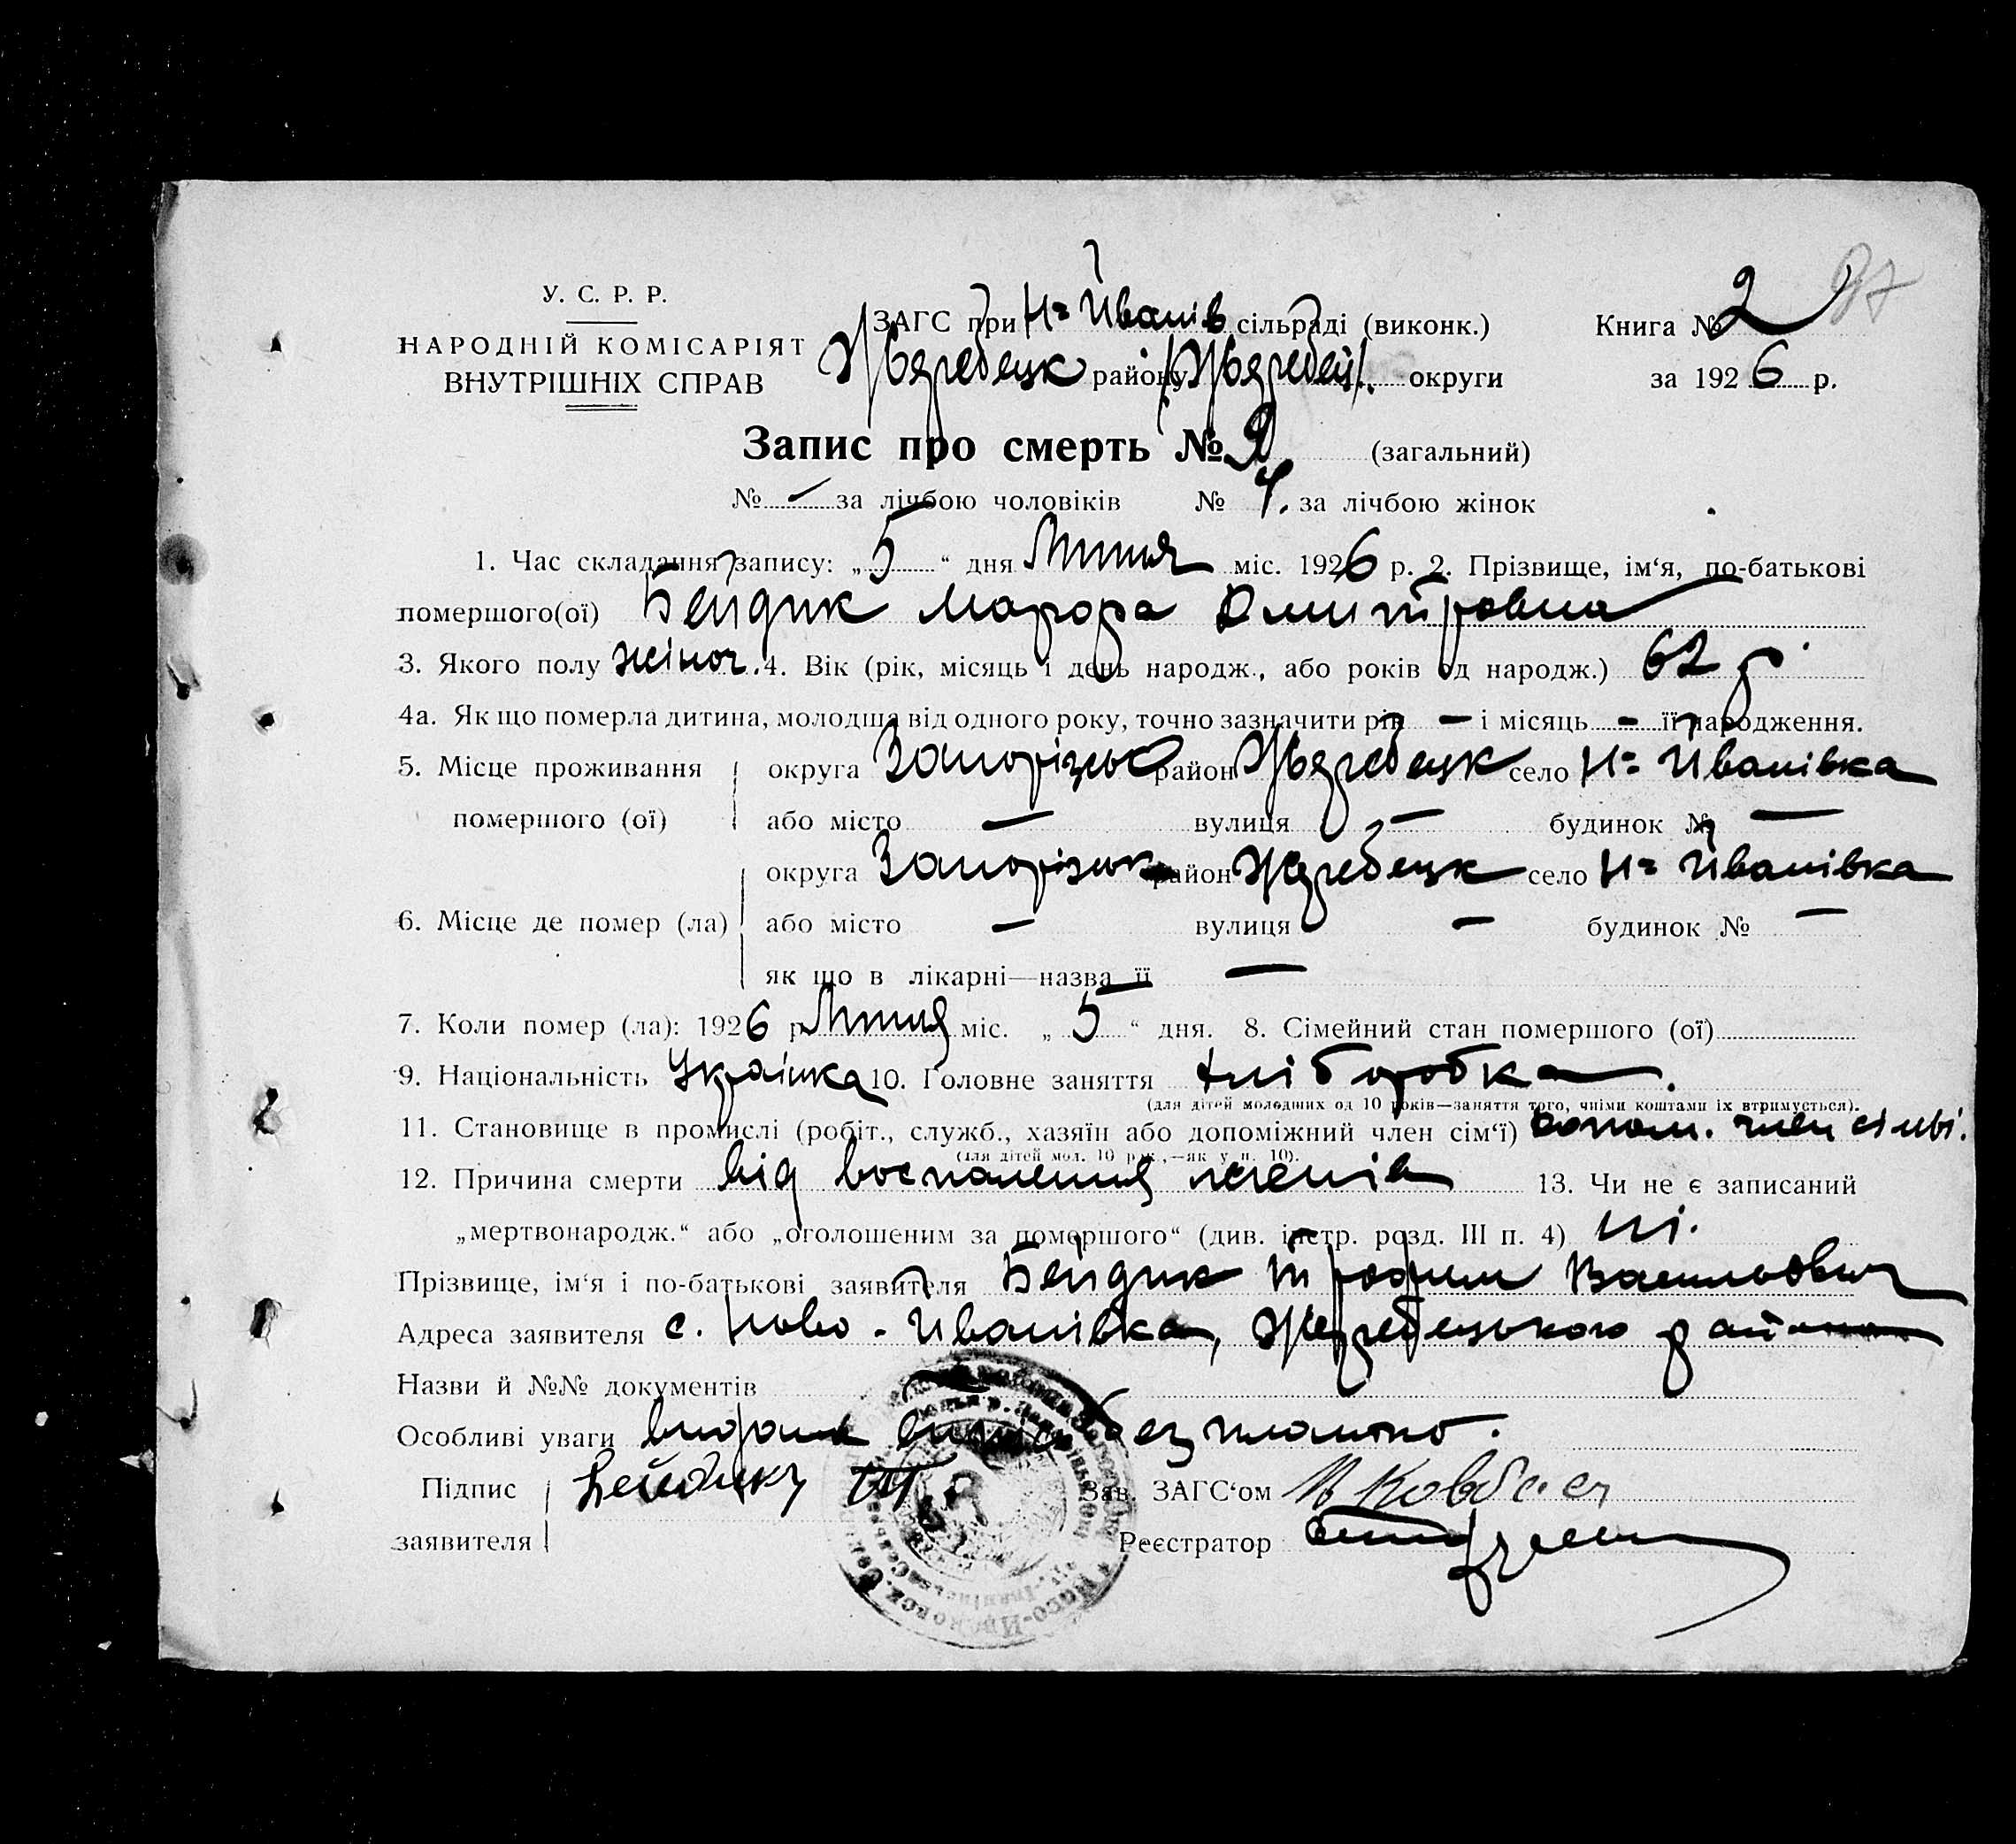 97
У. С. Р. Р.
НАРОДНІЙ КОМІСАРІЯТ
ВНУТРІШНІХ СПРАВ
ЗАГС при Н= Йванів сільраді (виконк.)
Жеребецк району Жеребец. округи
Книга № 2
за 1926 р.
Запис про смерть № 9 (загальний)
№ – за лічбою чоловіків № 4. за лічбою жінок
1. Час складання запису: „5“ дня Липня міс. 1926 р. 2. Прізвище, ім‘я, по-батькові
помершого(ої) Бейдик Марфа Дмитровна
3. Якого полу жіноч. 4. Вік (рік, місяць і день народж., або років од народж.) 62 р.
4а. Як що померла дитина, молодша від одного року, точно зазначити рік – і місяць – її народження.
5. Місце проживання помершого (ої) округа Запорізьк район Жеребецк село Н= Йванівка
або місто – вулиця – будинок № –
6. Місце де помер (ла) округа Запорізьк район Жеребецк село Н= Йванівка
або місто – вулиця – будинок № –
як що в лікарні—назва її –
7. Коли помер (ла): 1926 р. Липня міс. „5“ дня. 8. Сімейний стан помершого (ої)
9. Національність Українка 10. Головне заняття хліборобка.
(для дітей молодших од 10 років—заняття того, чиїми коштами їх втримується).
11. Становище в промислі (робіт., служб., хазяїн або допоміжний член сім‘ї) допом. член сімві.
(для дітей мол. 10 рок.,—як у п. 10).
12. Причина смерти від воспаления легенів 13. Чи не є записаний
„мертвонародж.“ або „оголошеним за помершого“ (див. інстр. розд. III п. 4) ні.
Прізвище, ім‘я і по-батькові заявителя Бейдик Трофим Васильович
Адреса заявителя с. Ново-Йванівка, Жеребецького району
Назви й №№ документів
Особливі уваги видана випись безплатно.
Підпис заявителя Бейдик Т
Зав. ЗАГС‘ом
Реєстратор